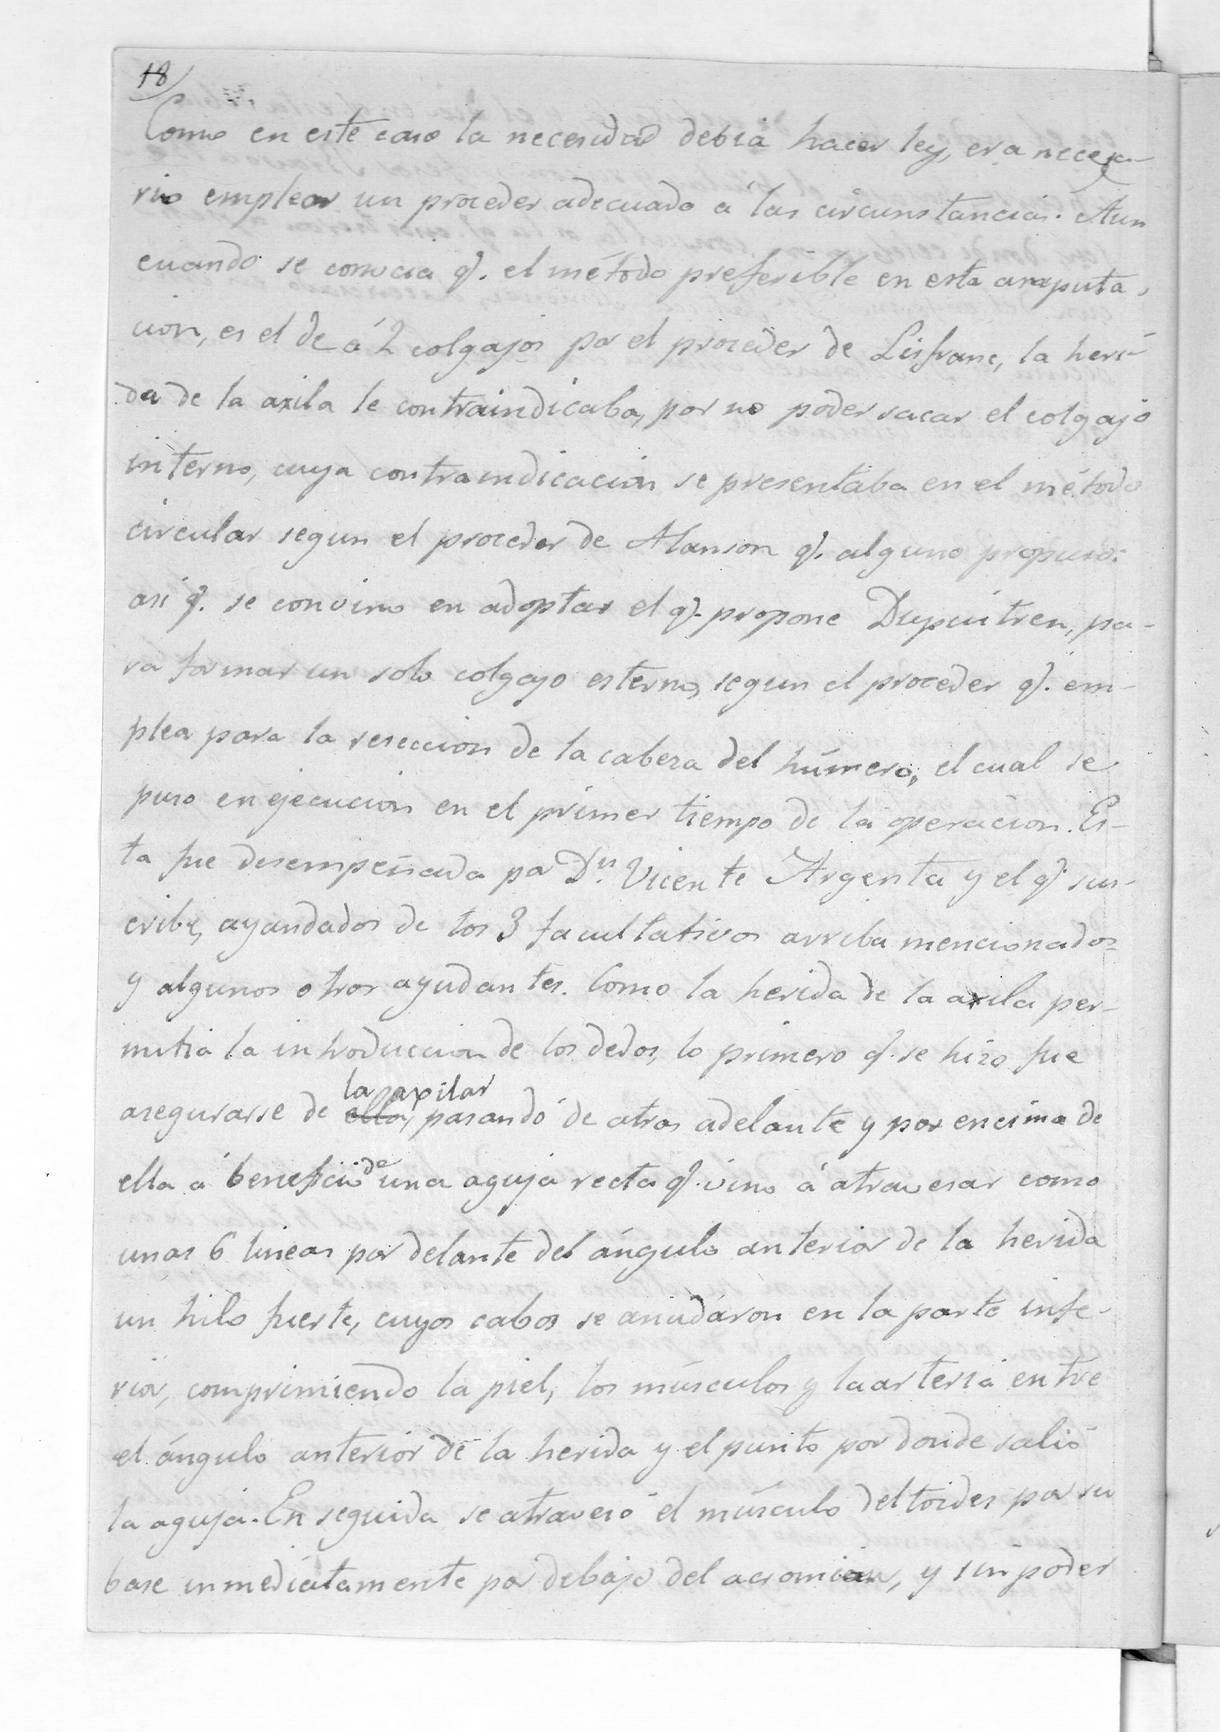 18
Como en este caso la necesidad debia hacer ley, era necesa-
rio emplear un proceder adecuado á las circunstancias. Aun
cuando se conocia q.e el método preferible en esta amputa-
cion, es el de á 2 colgajos por el proceder de Lisfranc, la heri-
da de la axila le contraindicaba, por no poder sacar el colgajo
interno, cuya contraindicacion se presentaba en el método
circular segun el proceder de Alanson q.e alguno propuso:
asi q.e se convino en adoptar el q.e propone Dupuitren, pa-
ra formar un solo colgajo esterno, segun el proceder q.e em-
plea para la reseccion de la cabeza del húmero, el cual se
puso en ejecucion en el primer tiempo de la operacion. Es-
ta fue desempeñada por D.n Vicente Argenta y el q.e sus-
cribe, ayandados de los 3 facultativos arriba mencionados
y algunos otros ayudantes. Como la herida de la axila per-
mitia la introduccion de los dedos, lo primero q.e se hizo fue
la axilar
asegurarse de ella, pasando de atras adelante y por encima de
ella á beneficio de una aguja recta q.e vino á atravesar como
unas 6 lineas por delante del ángulo anterior de la herida
un hilo fuerte, cuyos cabos se anudáron en la parte infe-
rior, comprimiendo la piel, los músculos y la arteria entre
el ángulo anterior de la herida y el punto por donde salió
la aguja. En seguida se atravesó el músculo deltoides por su
base inmediatamente por debajo del acromion, y sin poder